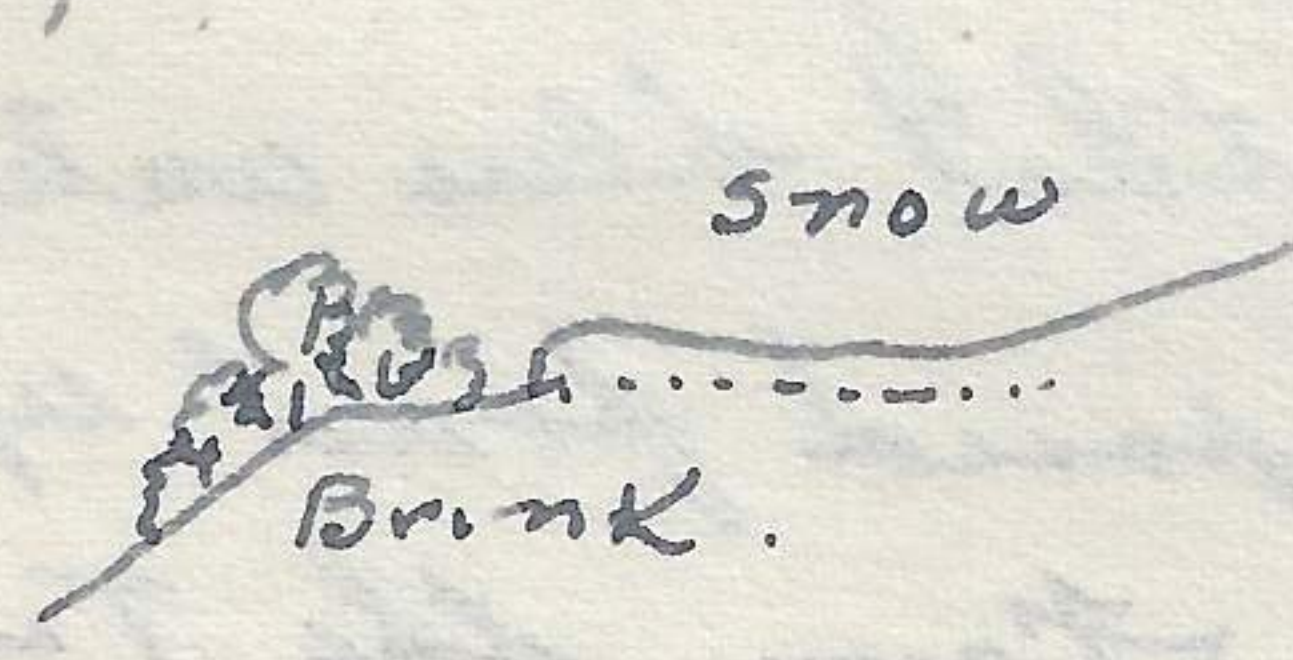 Snow
Brink.